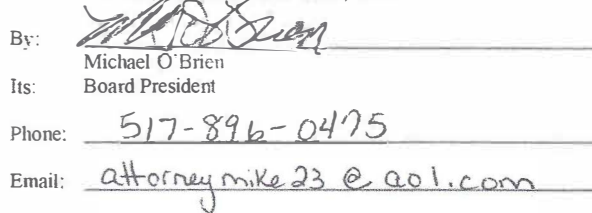 By: M O'Brien
Michael O'Brien
Its: Board President
Phone: 517-896-0475
Email: attorneymike23@aol.com